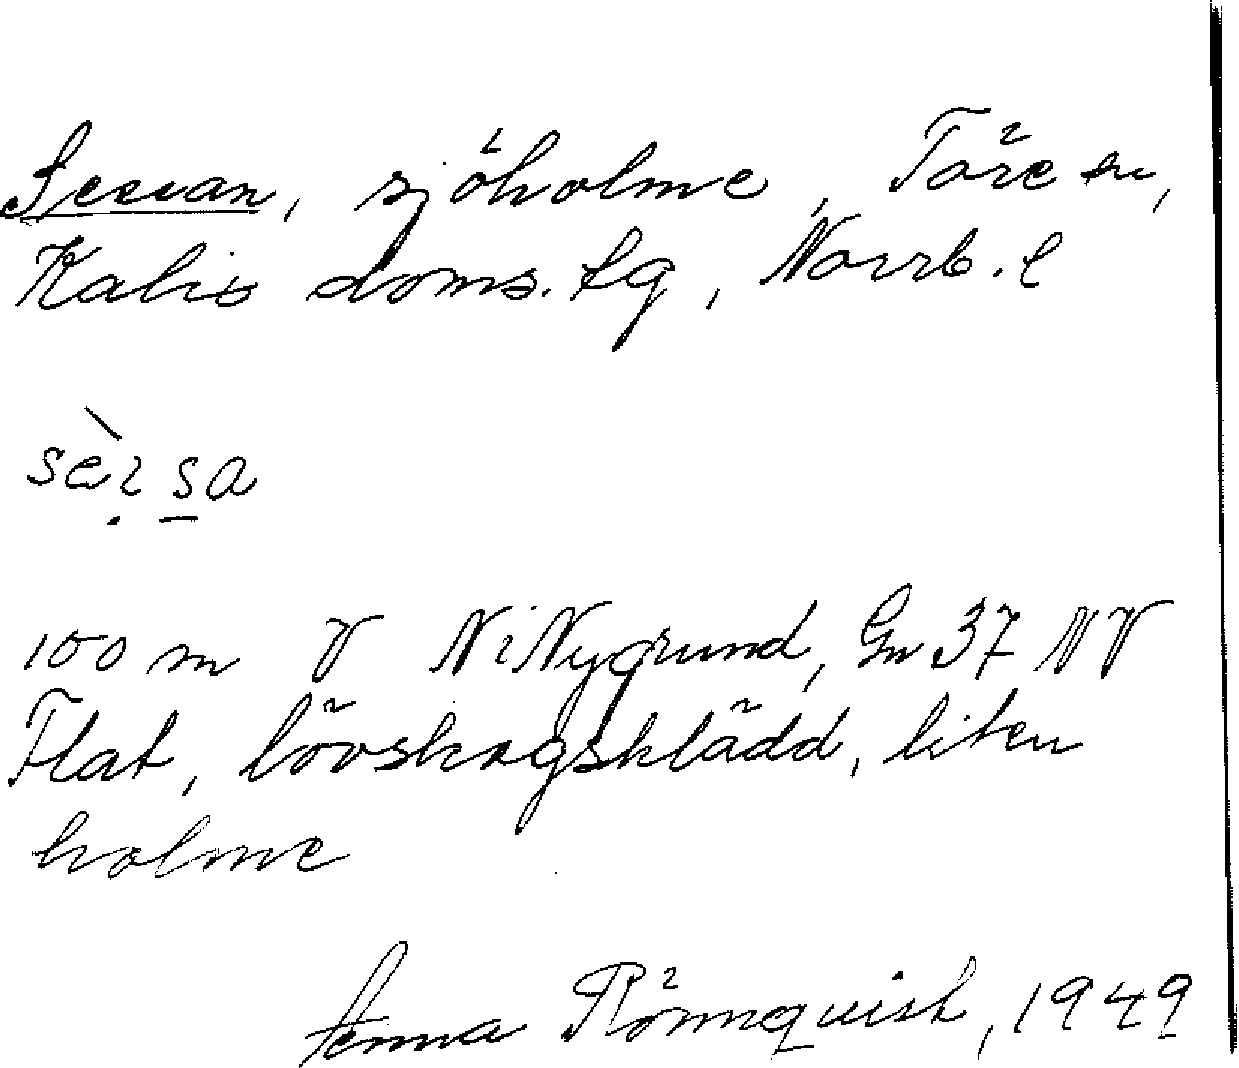 Sessan, sjöholme, Töre sn,
Kalix doms.lg, Norrb.l
sèsa
100 m V N i Nygrund, Gn 37 NV
Flat, lövskogsklädd, liten
holme
Anna Rönnquist, 1949